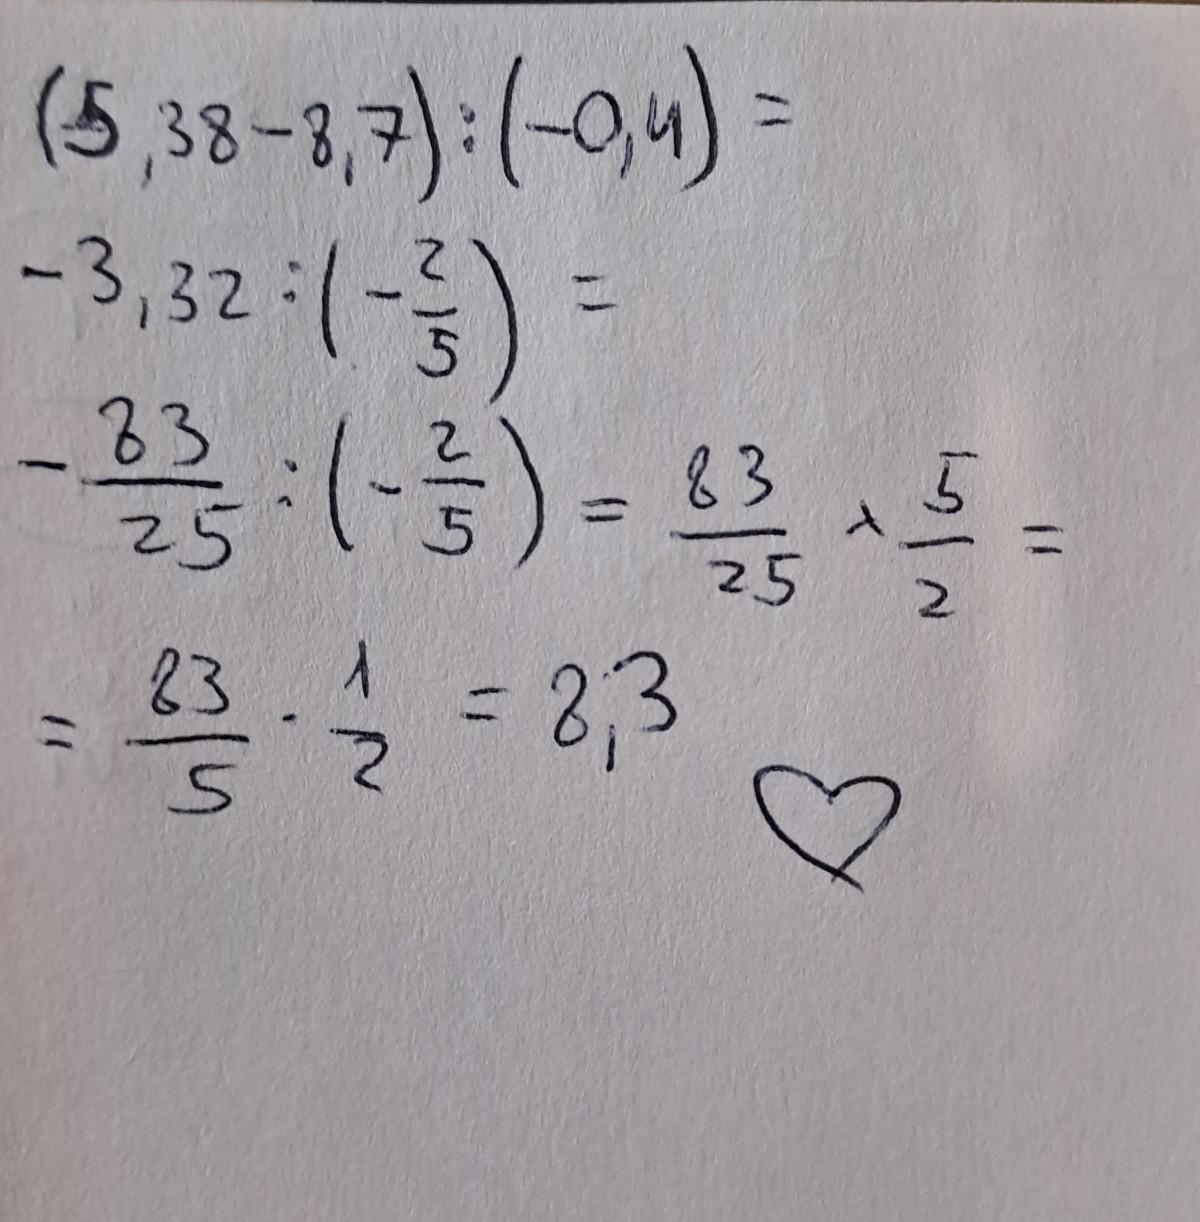 (5,38-8,7):(-0,4)=
-3,32:(-2/5)=
-83/25:(-2/5)=83/25×5/2=
=83/5·1/2=8,3